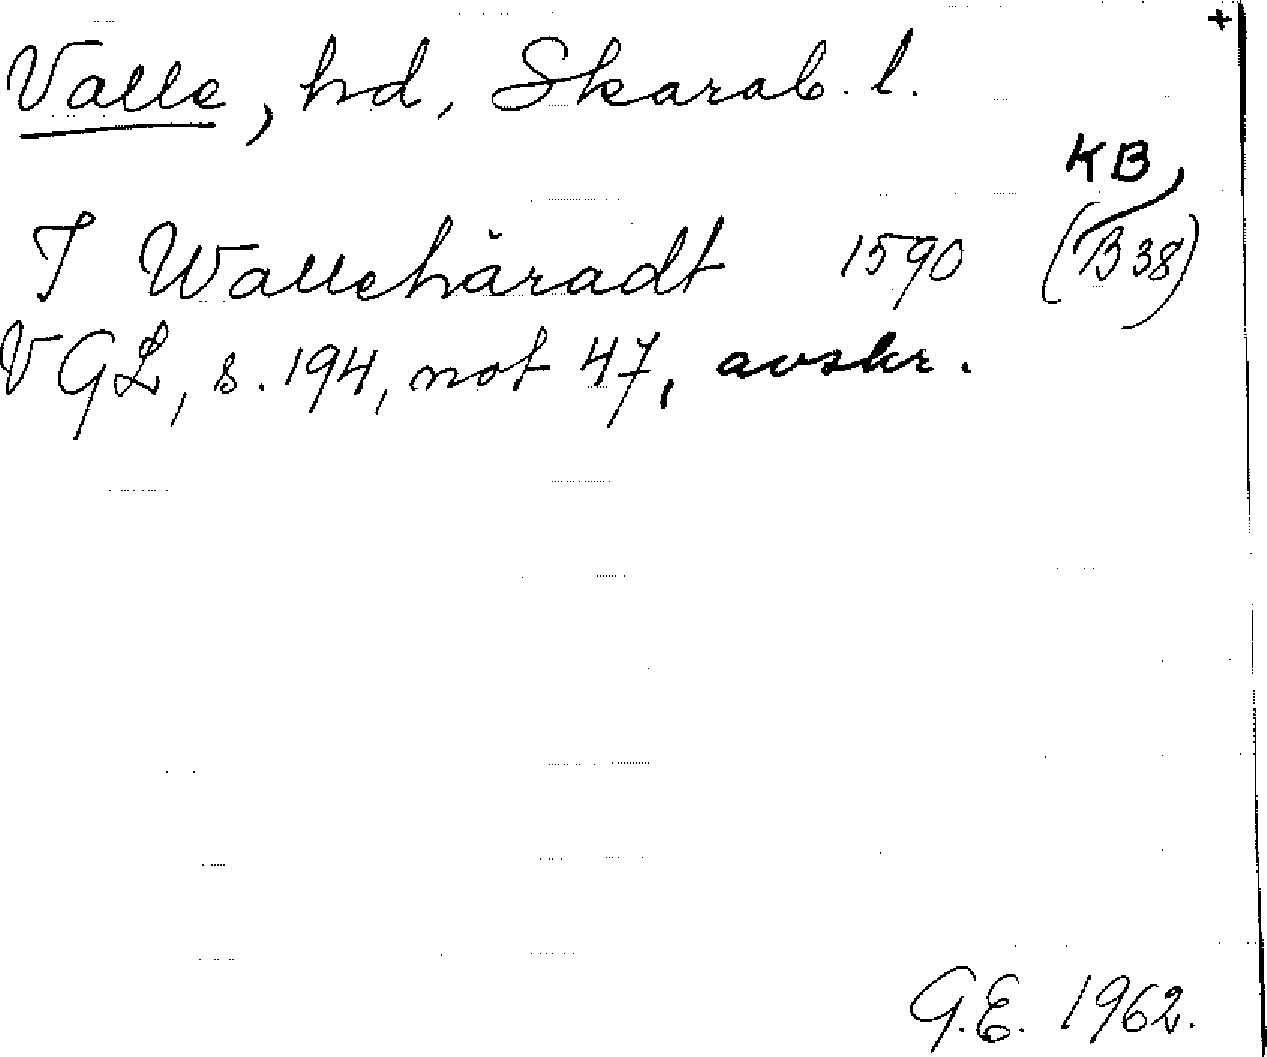 +
Valle, hd, Skarab. l.
KB,
I Wallehäradt 1590 (B 38)
VGL, s. 194, not 47, avskr.
G.E. 1962.